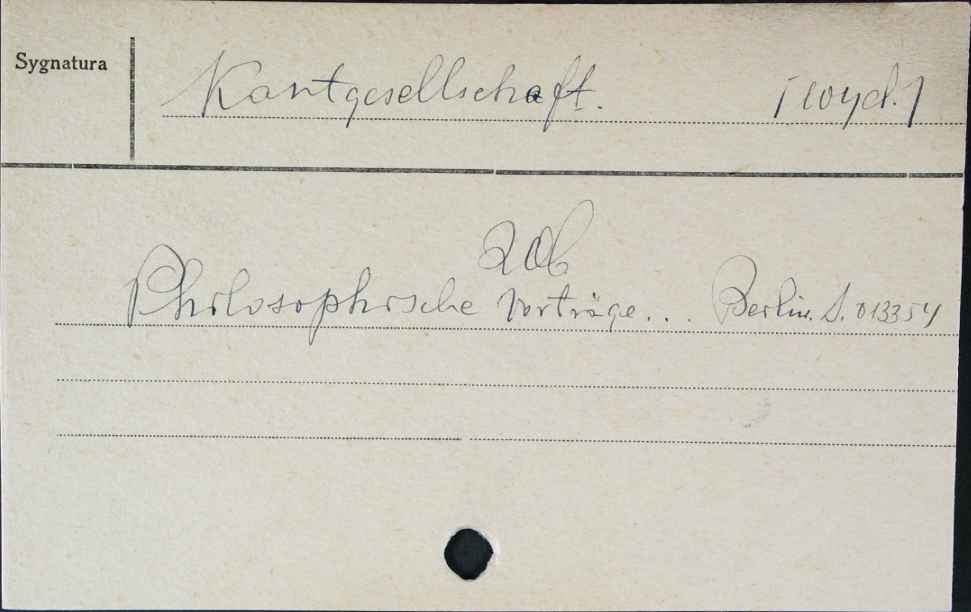 Sygnatura
Kantgesellschaft. [wyd.]
Zob
Philosophische Vorträge... Berlin. S. 013354